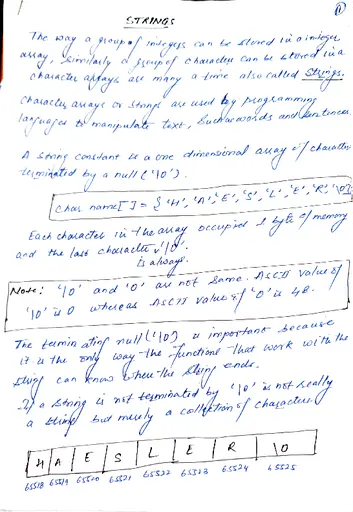 1
STRINGS
The way a group of integers can be stored in a integer
array, similarly a group of character can be stored in a
character arrays are many a time also called Strings.
Character arrays or strings are used by programming
languages to manipulate text, such as words and sentences
A string constant is a one dimensional array of character
terminated by a null ('\0').
Char name[] = {'H', 'A', 'E', 'S', 'L', 'E', 'R', '\0'}
Each character in the array occupies 1 byte of memory
and the last character is always '\0'.
Note: '\0' and '0' are not same. ASCII value of
'\0' is 0 whereas ASCII value of '0' is 48.
The terminating null ('\0') is important because
it is the only way the functions that work with the
string can know where the string ends.
If a string is not terminated by '\0' is not really
a string but merely a collection of character.
H A E S L E R \0
65518 65519 65520 65521 65522 65523 65524 65525